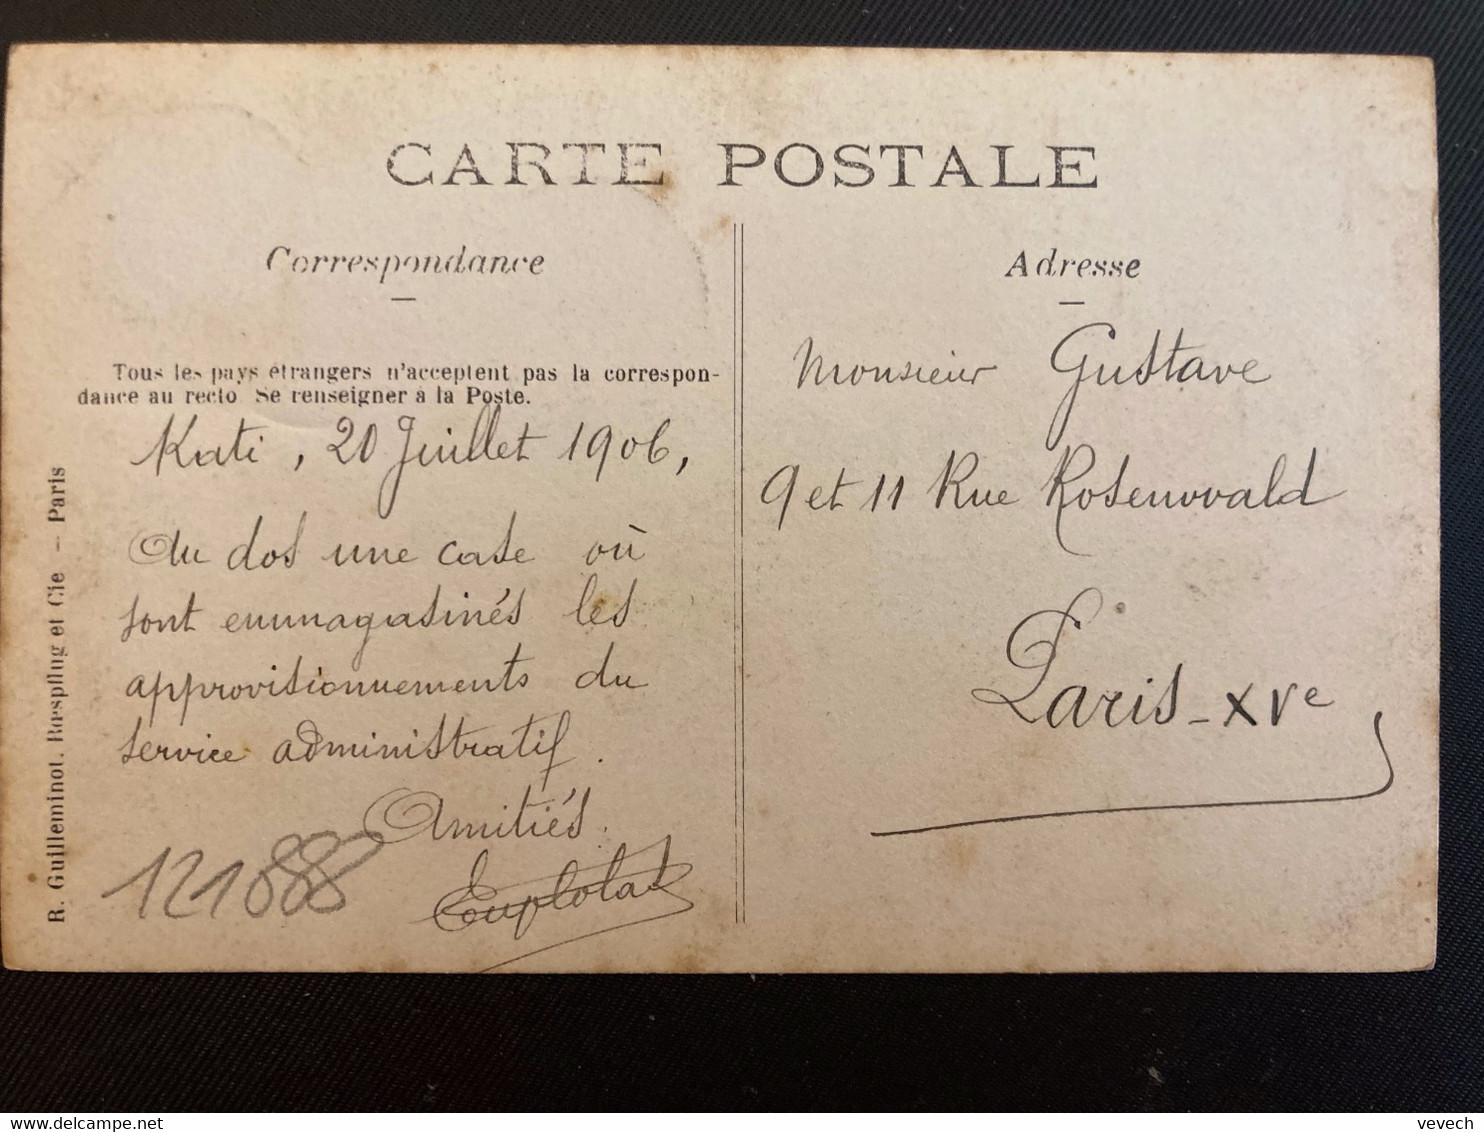 CARTE POSTALE
Correspondance
Tous les pays étrangers n'acceptent pas la correspon-
dance au recto Se renseigner à la Poste.
Kati, 20 Juillet 1906,
Au dos une case où
sont emmagasinés les
approvisionnements du
service administratif.
Amitiés.
121888
R. Guilleminot, Rœspflug et Cie - Paris
Adresse
Monsieur Gustave
9 et 11 Rue Rosenwald
Paris - XVe
vevech